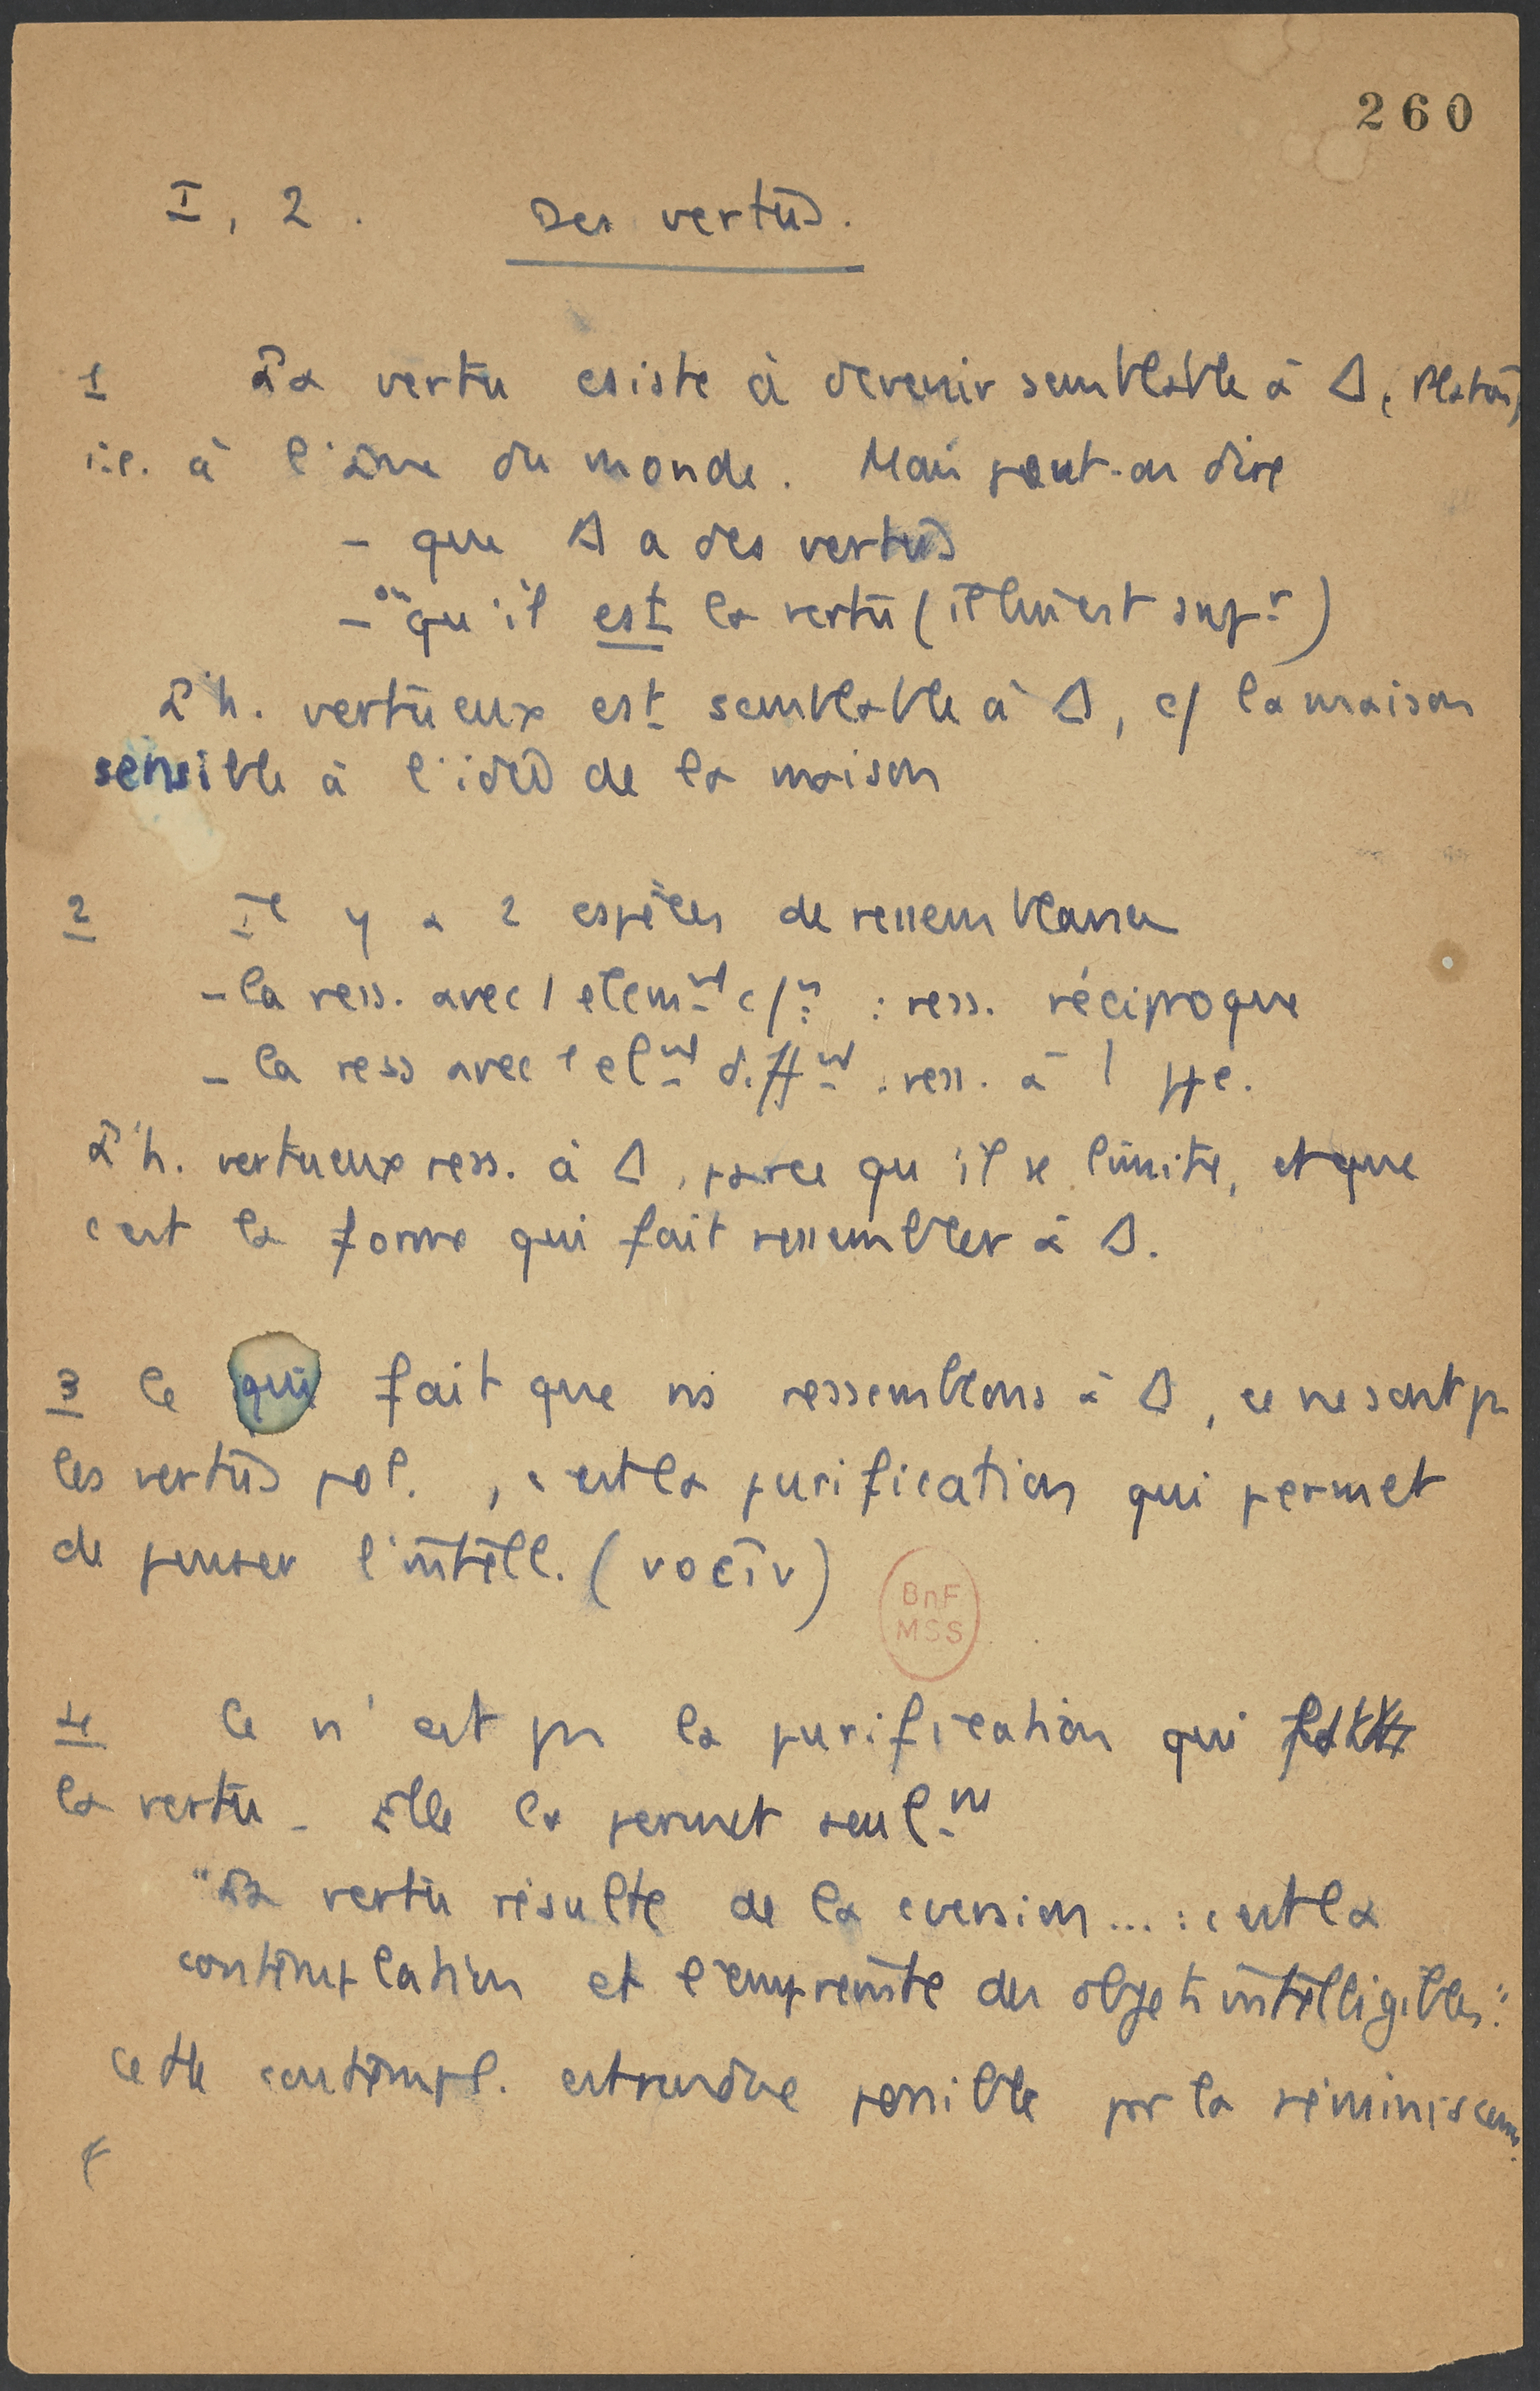 260
I, 2. Des vertus.
1 La vertu csiste à devenir semblable à Δ, (Platon)
i.e. à l'âme du monde. Mais peut-on dire
- que Δ a des vertus
- ou qu'il est la vertu (il lui est supr)
L'h. vertueux est semblable à Δ, c/ la maison
sensible à l'idée de la maison
2 Il y a 2 espèces de ressemblance
- la ress. avec 1 elemnt c/n : ress. réciproque
- la ress avec 1 elnt diffnt : ress. à 1 ppe.
L'h. vertueux ress. à Δ, parce qu'il se limite, et que
c'est la forme qui fait ressembler à Δ.
3 Ce qui fait que ns ressemblons à Δ, ce ne sont ps
les vertus pol., c'est la purification qui permet
de penser l'intell. (νοεῖν)
BnF
MSS
4 Ce n'est ps la purification qui
la vertu - Elle la permet seulnt
"La vertu résulte de la cversion... : c'est la
contemplation et l'empreinte des objets intelligibles":
cette contempl. est rendue possible pr la réminiscence.